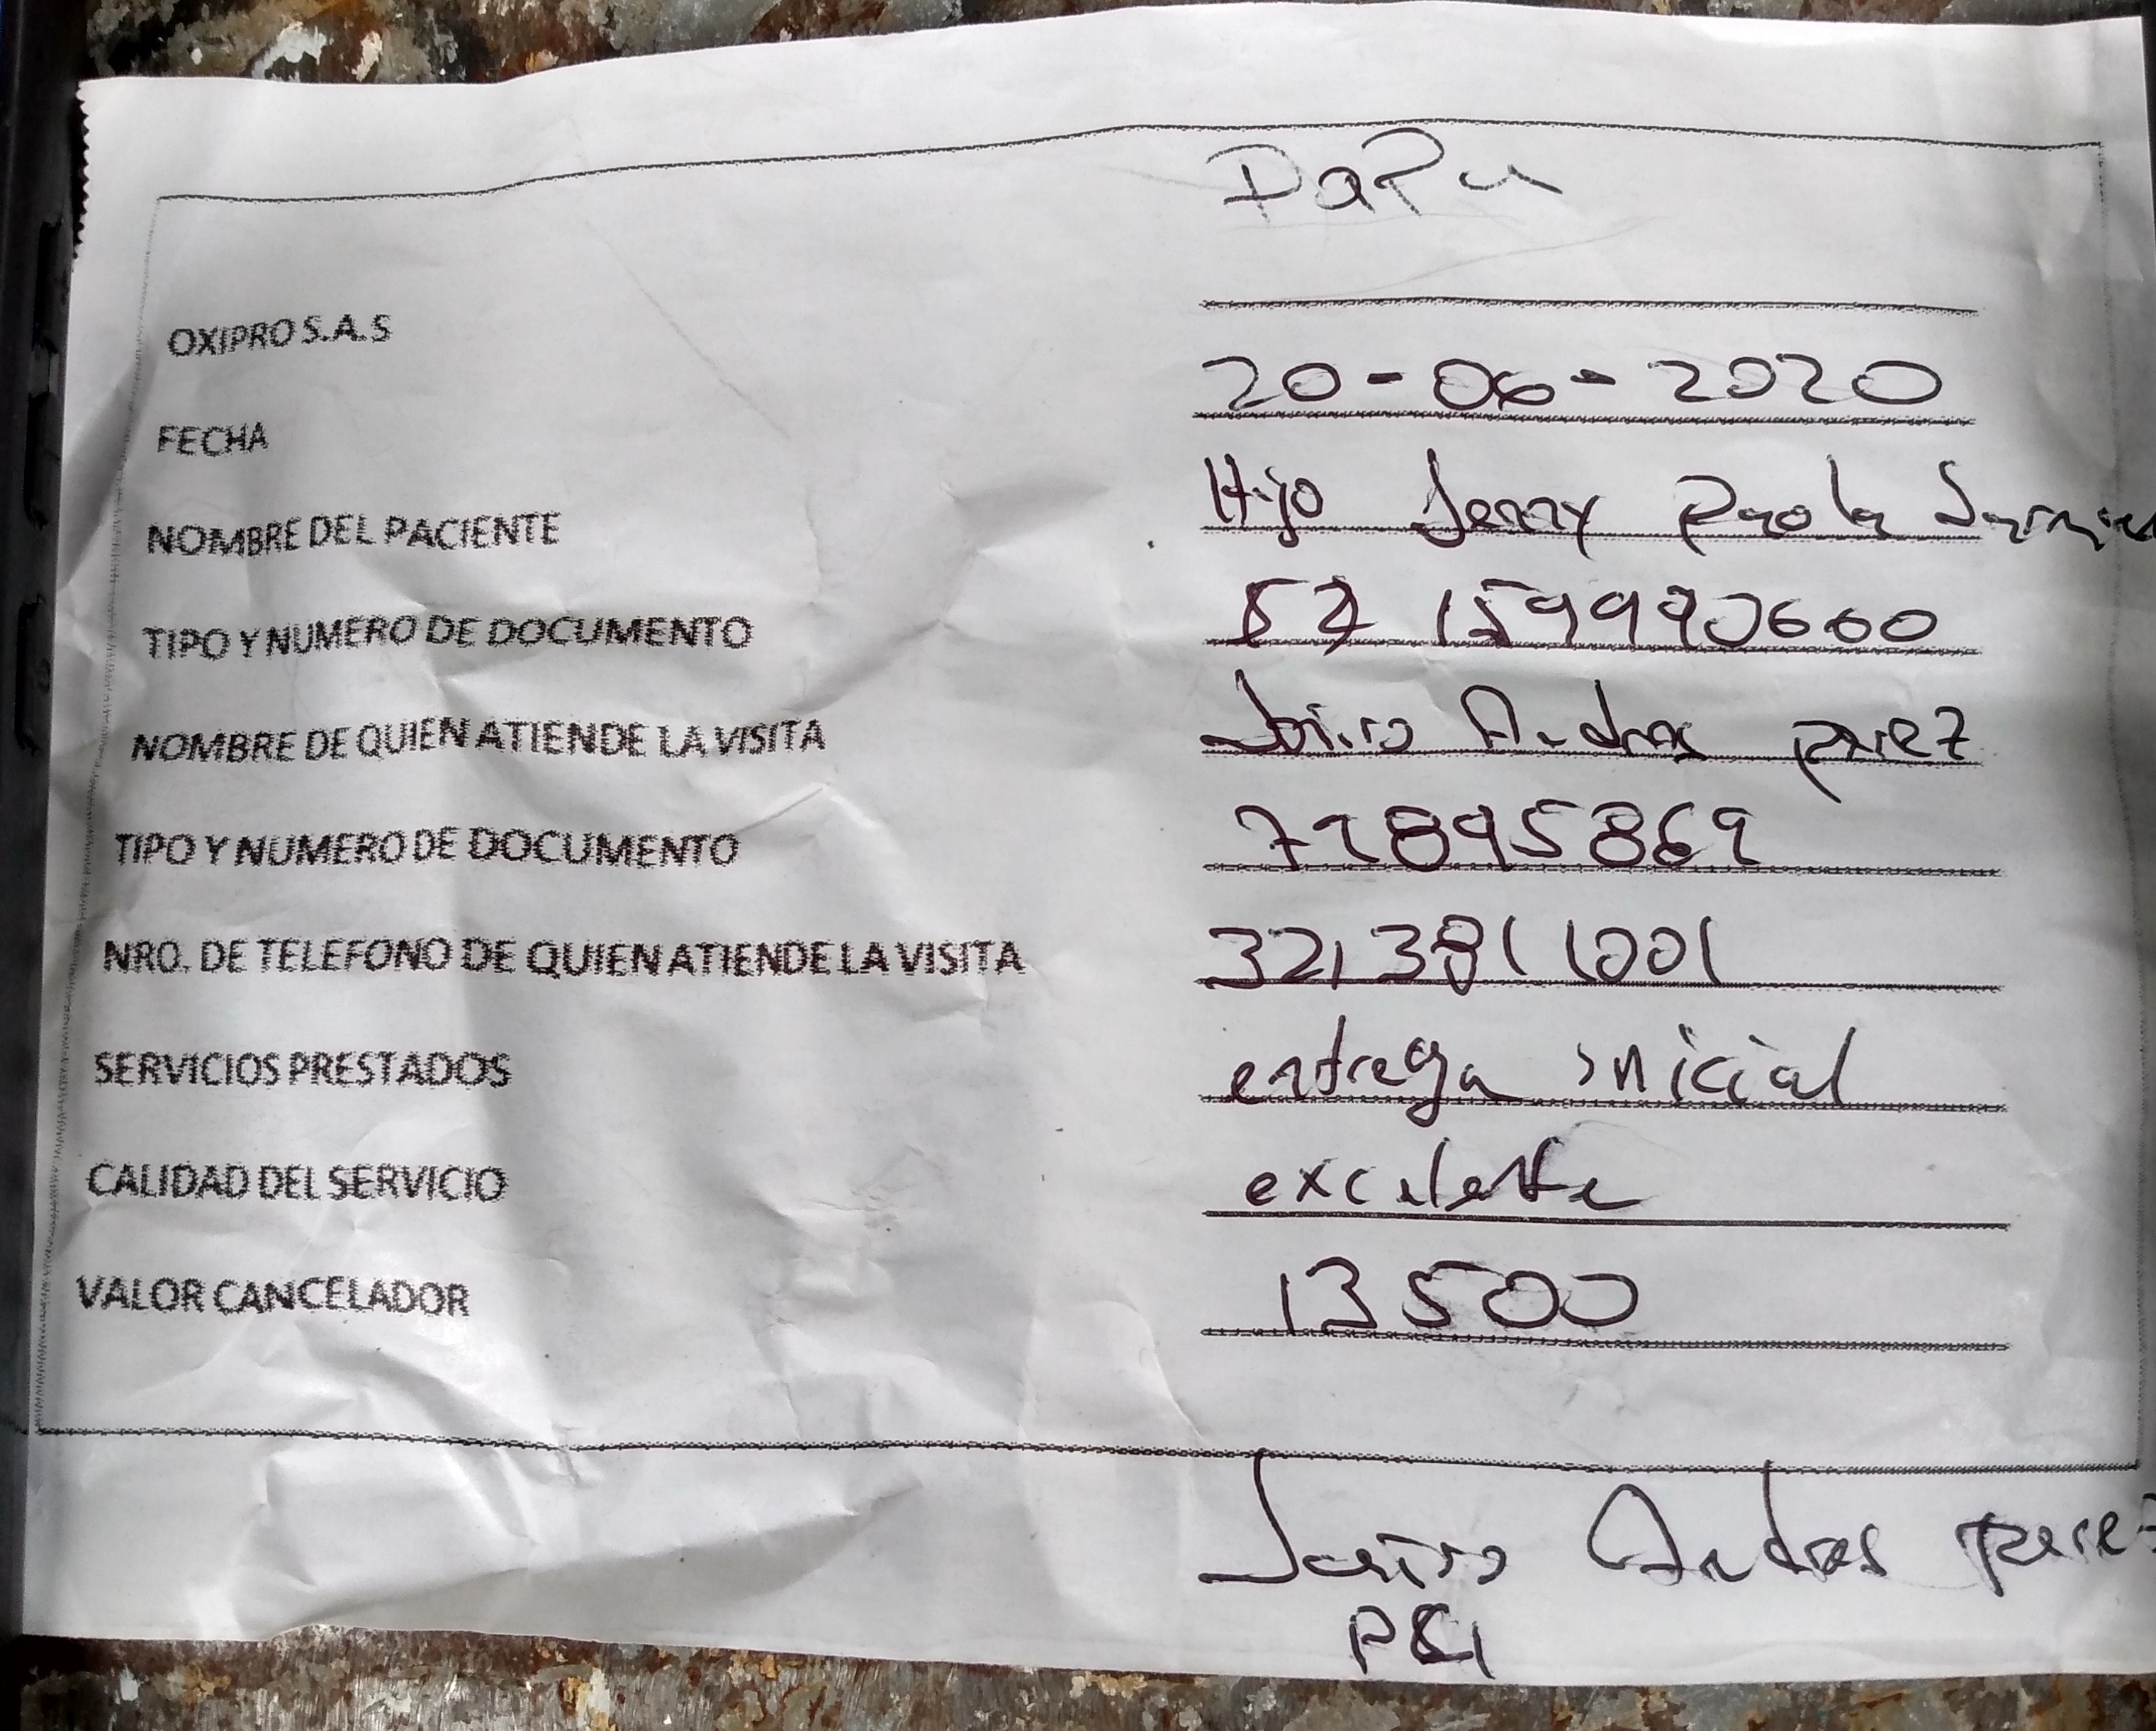 DaPu
OXIPRO S.A.S
FECHA 20-06-2020
NOMBRE DEL PACIENTE Hijo Jenny Paola
TIPO Y NUMERO DE DOCUMENTO
NOMBRE DE QUIEN ATIENDE LA VISITA Jairo Andres perez
TIPO Y NUMERO DE DOCUMENTO
NRO. DE TELEFONO DE QUIEN ATIENDE LA VISITA 321 3811001
SERVICIOS PRESTADOS entrega inicial
CALIDAD DEL SERVICIO excelente
VALOR CANCELADOR 13500
Jairo Andres perez